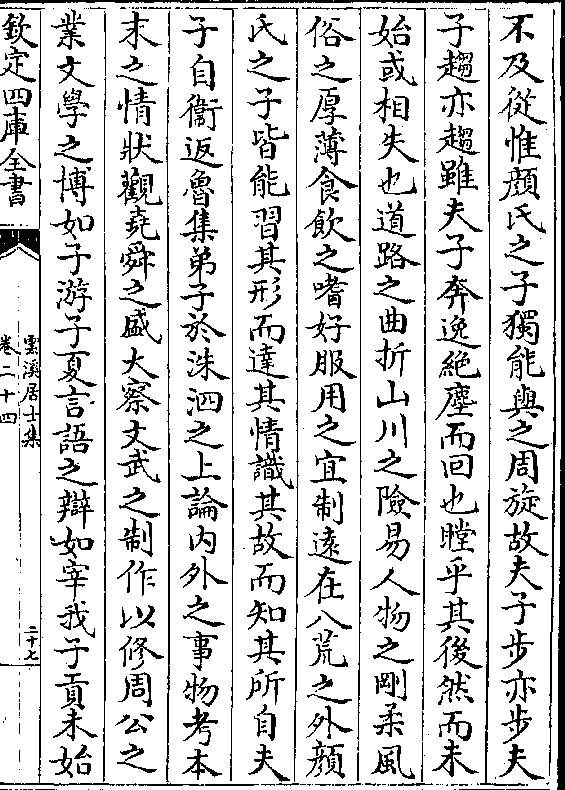 不及從惟顔氏之子獨能與之周旋故夫子步亦步夫
子趨亦趨雖夫子奔逸絶塵而回也瞠乎其後然而未
始或相失也道路之曲折山川之險易人物之剛柔風
俗之厚薄食飲之嗜好服用之宜制逺在八荒之外顔
氏之子皆能習其形而達其情識其故而知其所自夫
子自衞返魯集弟子於洙泗之上論内外之事物考本
末之情狀觀堯舜之盛大察文武之制作以修周公之
業文學之博如子游子夏言語之辯如宰我子貢未始
欽定四庫全書
雲溪居士集
卷二十四
二十七